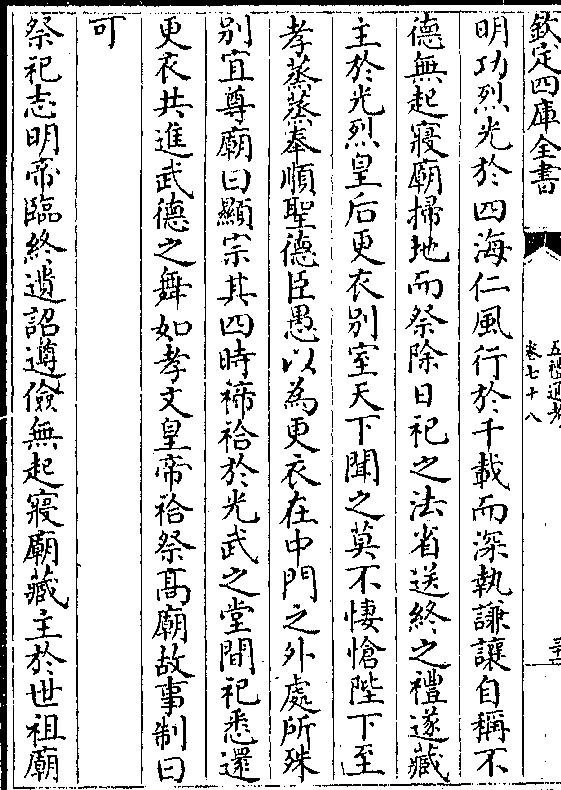 欽定四庫全書
五禮通考
卷七十八
三十
明功烈光於四海仁風行於千載而深執謙讓自稱不
德無起寢廟掃地而祭除日祀之法省送終之禮遂藏
主於光烈皇后更衣别室天下聞之莫不悽愴陛下至
孝蒸蒸奉順聖德臣愚以為更衣在中門之外處所殊
别宜尊廟曰顯宗其四時禘祫於光武之堂間祀悉還
更衣共進武德之舞如孝文皇帝祫祭髙廟故事制曰
可
祭祀志明帝臨終遺詔遵儉無起寢廟藏主於世祖廟